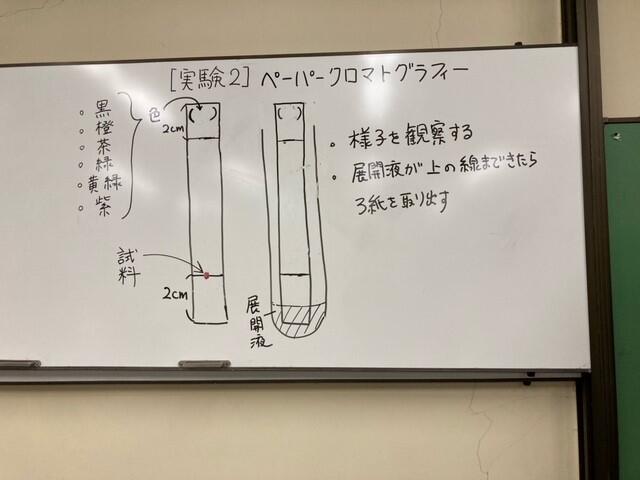 [実験2] ペーパークロマトグラフィー
。黒
。橙
。茶
。緑
。黄緑
。紫
色
( )
2cm
試料
2cm
( )
展開液
。様子を観察する
。展開液が上の線まできたら
ろ紙を取り出す